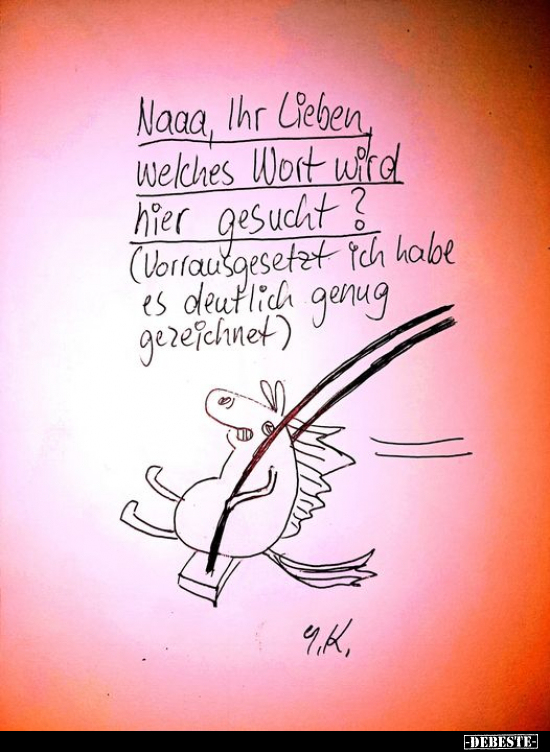 Naaa, Ihr Lieben,
welches Wort wird
hier gesucht?
(Vorrausgesetzt ich habe
es deutlich genug
gezeichnet)
y.K.
-DEBESTE-